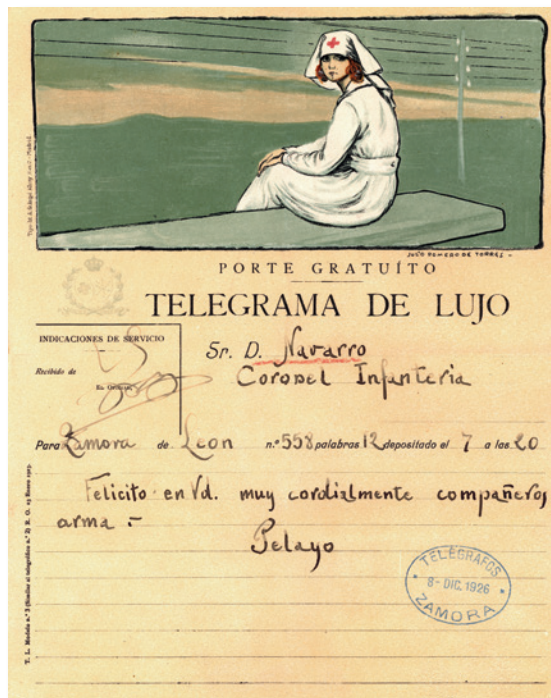 JULIO ROMERO DE TORRES
PORTE GRATUÍTO
TELEGRAMA DE LUJO
INDICACIONES DE SERVICIO
Recibido de
Sr. D. Navarro
Coronel Infanteria
Para Zamora de Leon n.º 558 palabras 12 depositado el 7 a las 20
Felicito en Vd. muy cordialmente compañeros
arma =
Pelayo
TELEGRAFOS
8- DIC. 1926
ZAMORA